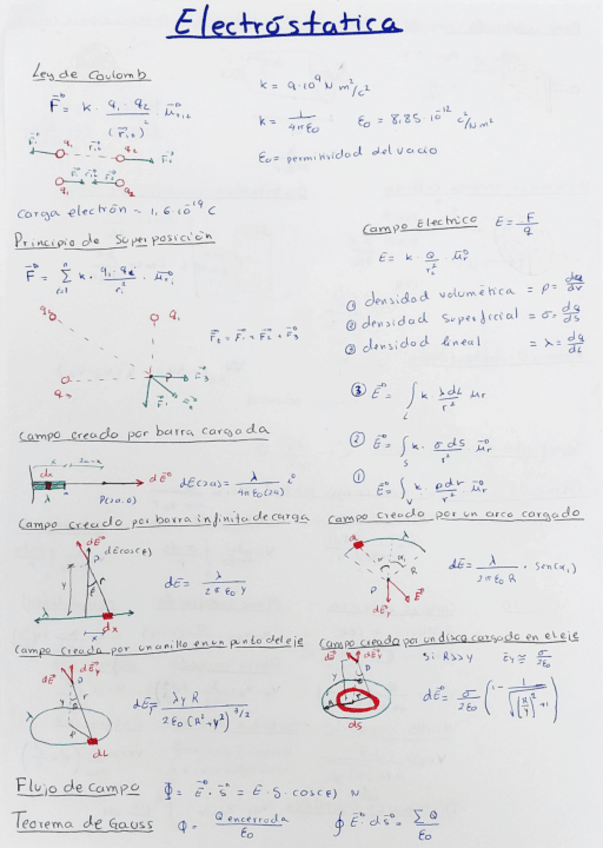 Electróstatica
Ley de Coulomb
F = k · q₁ · q₂ / (r₁₂)² · μr₁₂
k = 9·10⁹ N m²/c²
k = 1/4πε₀    ε₀ = 8,85·10⁻¹² c²/N m²
ε₀ = permitividad del vacio
q₁ r₁₂ q₂
carga electrón ~ 1,6·10⁻¹⁹ C
Principio de Superposición
F = Σ k · q₁ · qᵢ / rᵢ² · μrᵢ
q₁
F₃
Campo Electrico E = F/q
E = k · Q/r² · μr
① densidad volumética = ρ = dq/dv
② densidad superficial = σ = dq/ds
③ densidad lineal = λ = dq/dL
③ E = ∫L k · λdL/r² μr
② E = ∫S k · σ ds/r² μr
① E = ∫V k · ρdv/r² μr
Campo creado por barra cargada
dx
λ
dE
P(2a,0)
dE(2a) = λ/4πε₀(2a) i
Campo creado por barra infinita de carga
dE
dEcos(θ)
P
y
r
λ
x
dx
dE = λ/2πε₀ y
Campo creado por un arco cargado
λ
R
P
E
dEy
dE = λ/2πε₀ R · sen(α₁)
Campo creado por un anillo en un punto del eje
dE
dEy
P
y
r
λ
dL
dEy = λy R / 2ε₀(R²+y²)^3/2
Campo creado por un disco cargado en el eje
dE
dEy
P
y
ds
Si R>>y    Ey ≅ σ/2ε₀
dE = σ/2ε₀ (1 - 1/√((R/y)²+1))
Flujo de campo Φ = E · S = E · S · cos(θ) N
Teorema de Gauss Φ = Q encerrada/ε₀    ∮ E · ds = ΣQ/ε₀